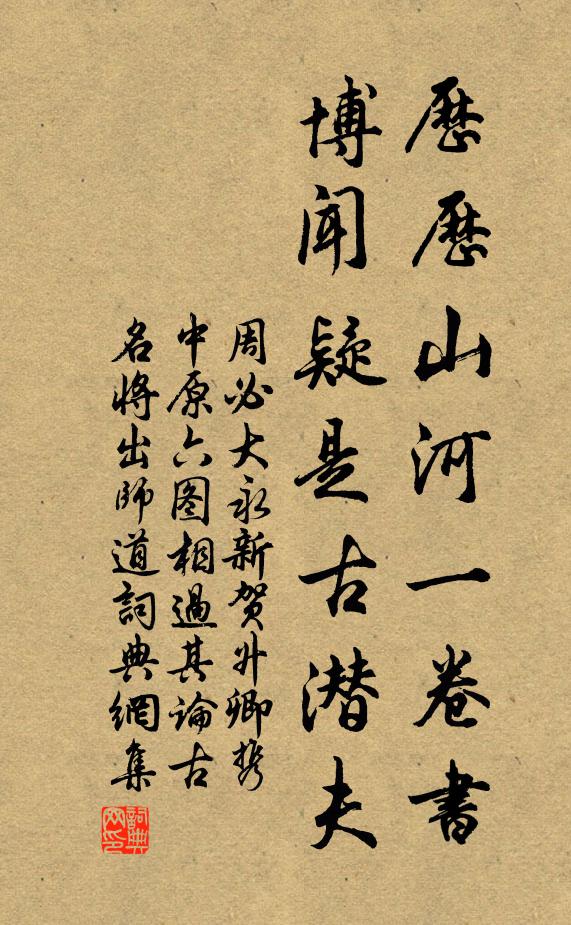 歷歷山河一卷書
博聞疑是古潛夫
周必大永新贺升卿携
中原六图相過其論古
名將出師道詞典網集
詞典网印